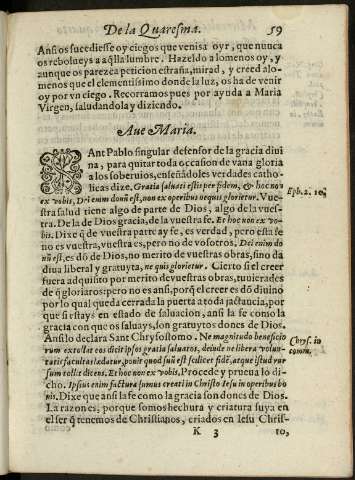 De la Quaresma. 59
Ansi os sucediesse oy ciegos que venis a oyr, que nunca
os rebolueys a aq̃lla lumbre. Hazeldo a lo menos oy, y
aunque os parezca peticion estraña, mirad, y creed alo-
menos que el clementissimo donde la luz, os ha de venir
oy por vn ciego. Recorramos pues por ayuda a Maria
Virgen, saludandola y diziendo.
Aue Maria.
SAnt Pablo singular defensor de la gracia diui
na, para quitar toda occasion de vana gloria
a los soberuios, enseñadoles verdades catho-
licas dize. Gratia saluati estis per fidem, & hoc non
ex vobis, Dei enim donũ est, non ex operibus nequis glorietur. Vue-
stra salud tiene algo de parte de Dios, algo de la vue-
stra. De la de Dios gracia, de la vuestra fe. Et hoc non ex vo-
bis. Dixe q̃ de vuestra parte ay fe, es verdad, pero esta fe
no es vuestra, vuestra es, pero no de vosotros. Dei enim do
nũ est, es dõ de Dios, no merito de vuestras obras, sino da
diua liberal y gratuyta, ne quis glorietur. Cierto si el creer
fuera adquisito por merito de vuestras obras, tuuierades
de q̃ gloriaros: pero no es ansi, porq̃ el creer es dõ diuino
por lo qual queda cerrada la puerta a toda jactaucia, por
que si estays en estado de saluacion, ansi la fe como la
gracia con que os saluays, son gratuytos dones de Dios.
Ansi lo declara Sant Chrysostomo. Ne magnitudo beneficio
rum extollat eos dicit ipsos gratia saluatos, deinde ne libera volun-
tatis facultas lædatur, ponit quod suũ est scilicet fidẽ, atque istud rur
sum tollit dicens. Et hoc non ex vobis, Procede y prueua lo di-
cho. Ipsius enim factura sumus creati in Christo Iesu in operibus bo
nis. Dixe que ansi la fe como la gracia son dones de Dios.
La razon es, porque somos hechura y criatura suya en
el ser q̃ tenemos de Christianos, criados en Iesu Chris-
K 3 to,
Eph. 2. 10.
Chrys. in
comm.